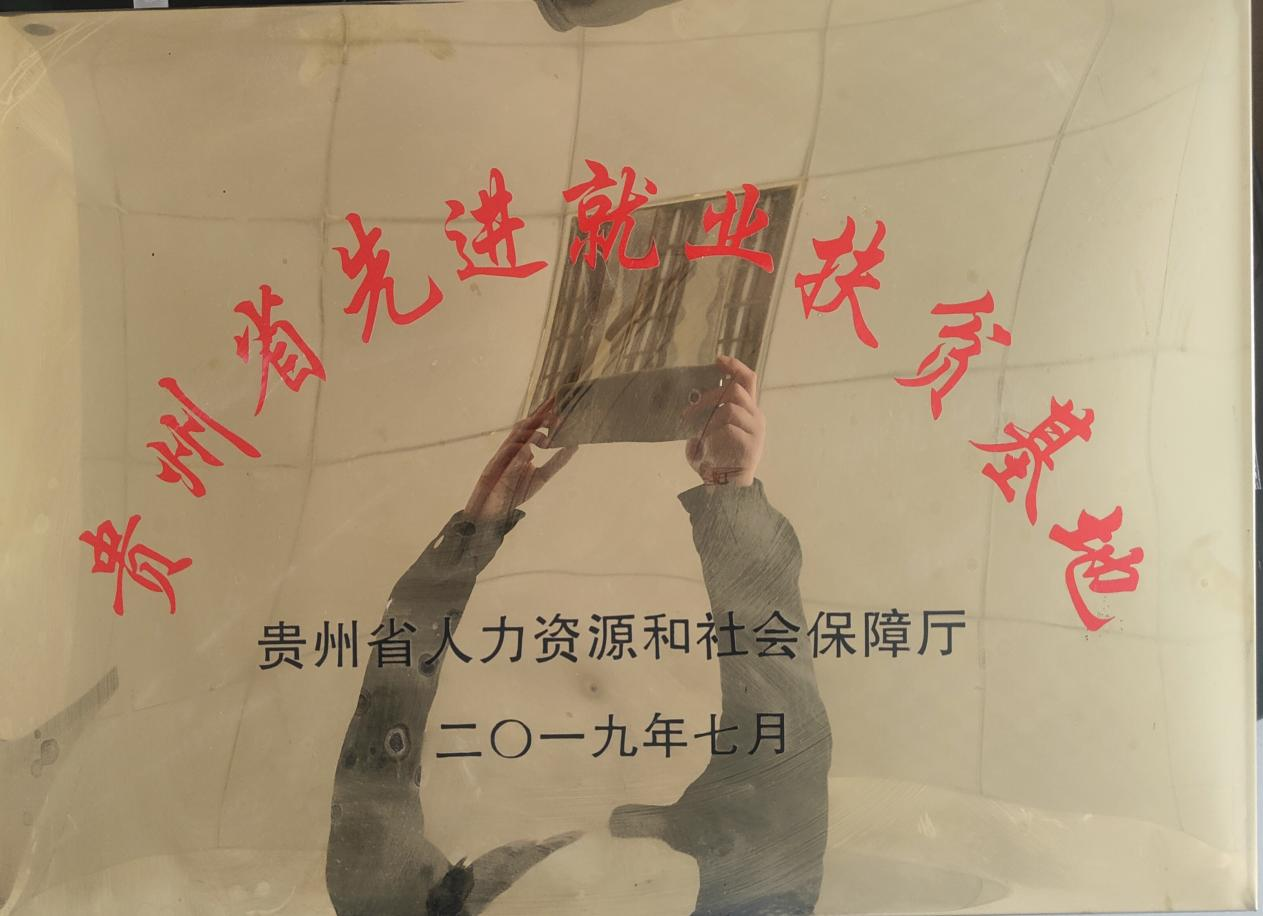 贵州省先进就业扶贫基地
贵州省人力资源和社会保障厅
二〇一九年七月